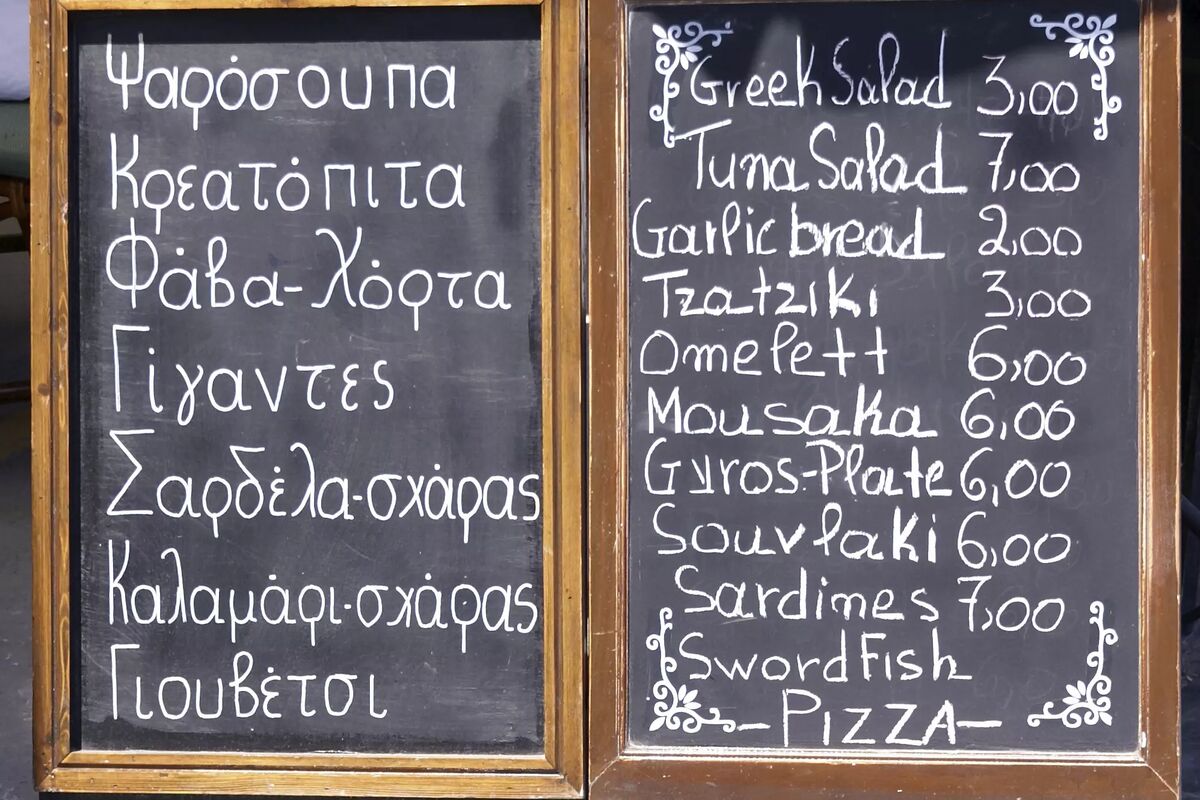 Ψαρόσουπα
Κρεατόπιτα
Φάβα-Χόρτα
Γίγαντες
Σαρδέλα-σχάρας
Καλαμάρι-σχάρας
Γιουβέτσι
Greek Salad 3,00
Tuna Salad 7,00
Garlic bread 2,00
Tzatziki 3,00
Omelett 6,00
Mousaka 6,00
Gyros-Plate 6,00
Souvlaki 6,00
Sardines 7,00
SwordFish
-PIZZA-